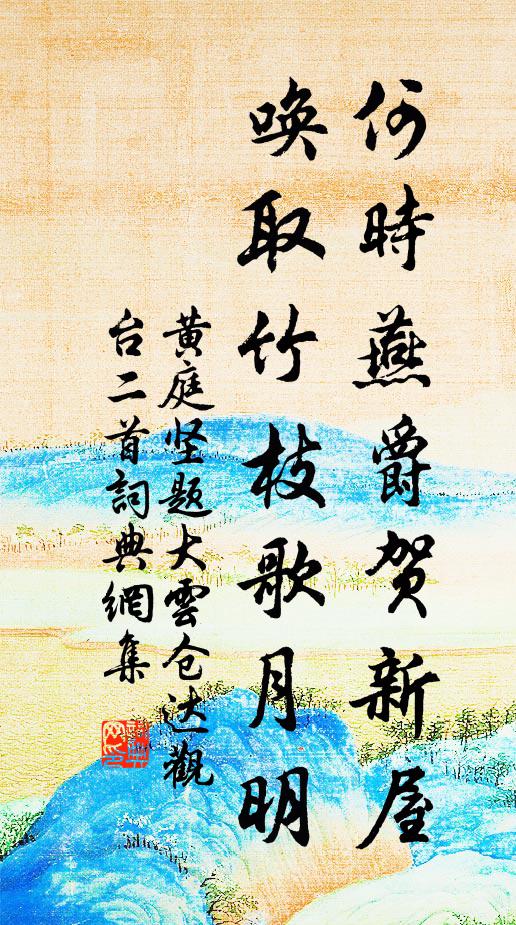 何時燕爵贺新屋
唤取竹枝歌月明
黄庭坚题大雲仓达觀
台二首詞典網集